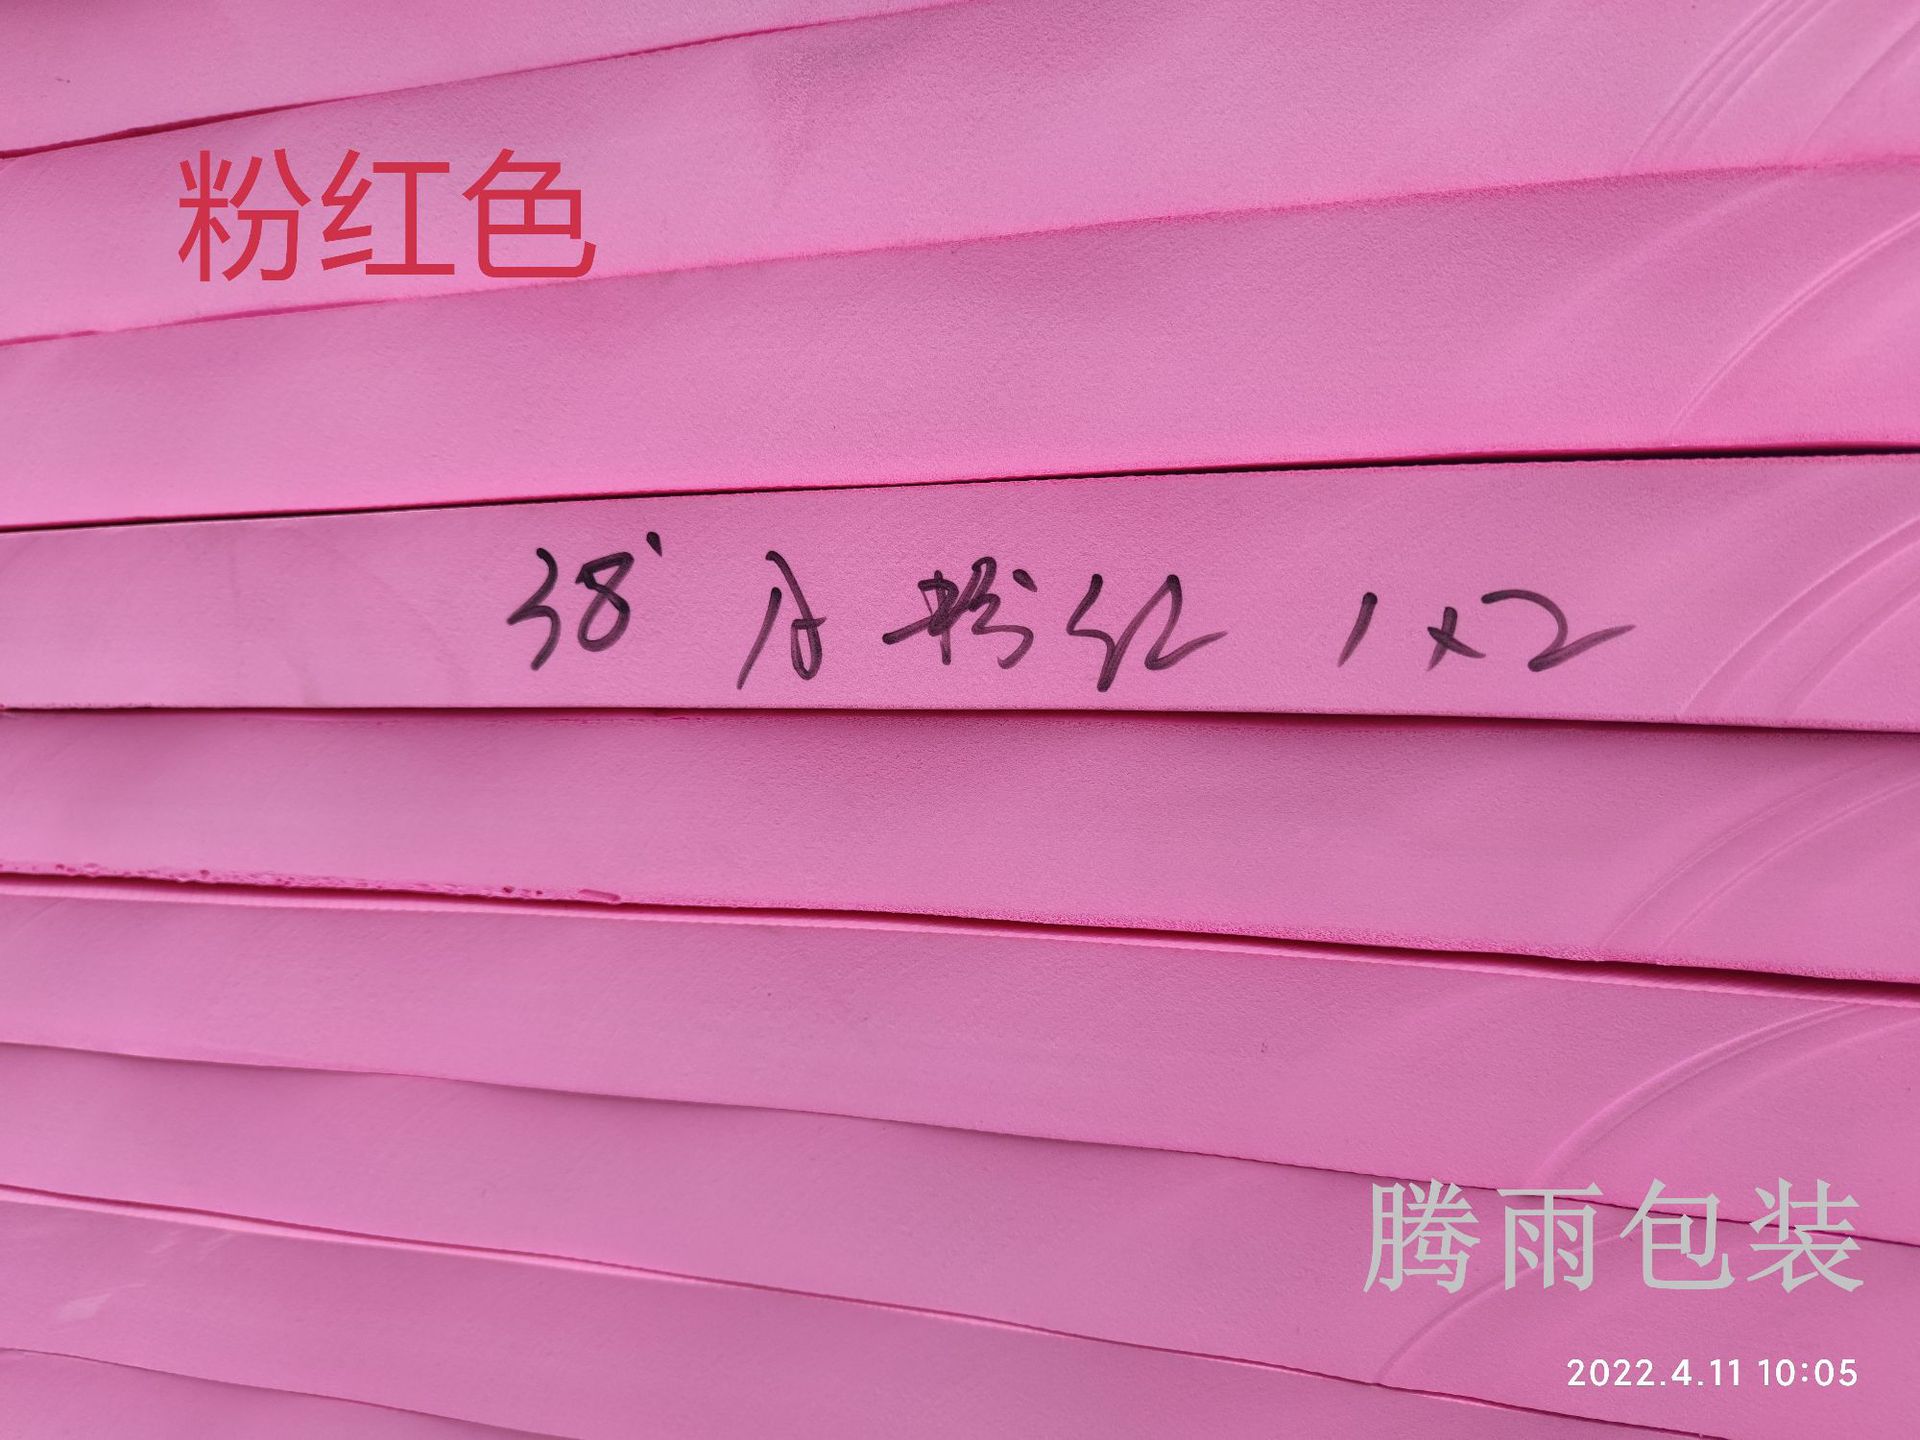 粉红色
38° A 粉红 1×2
腾雨包装
2022.4.11 10:05